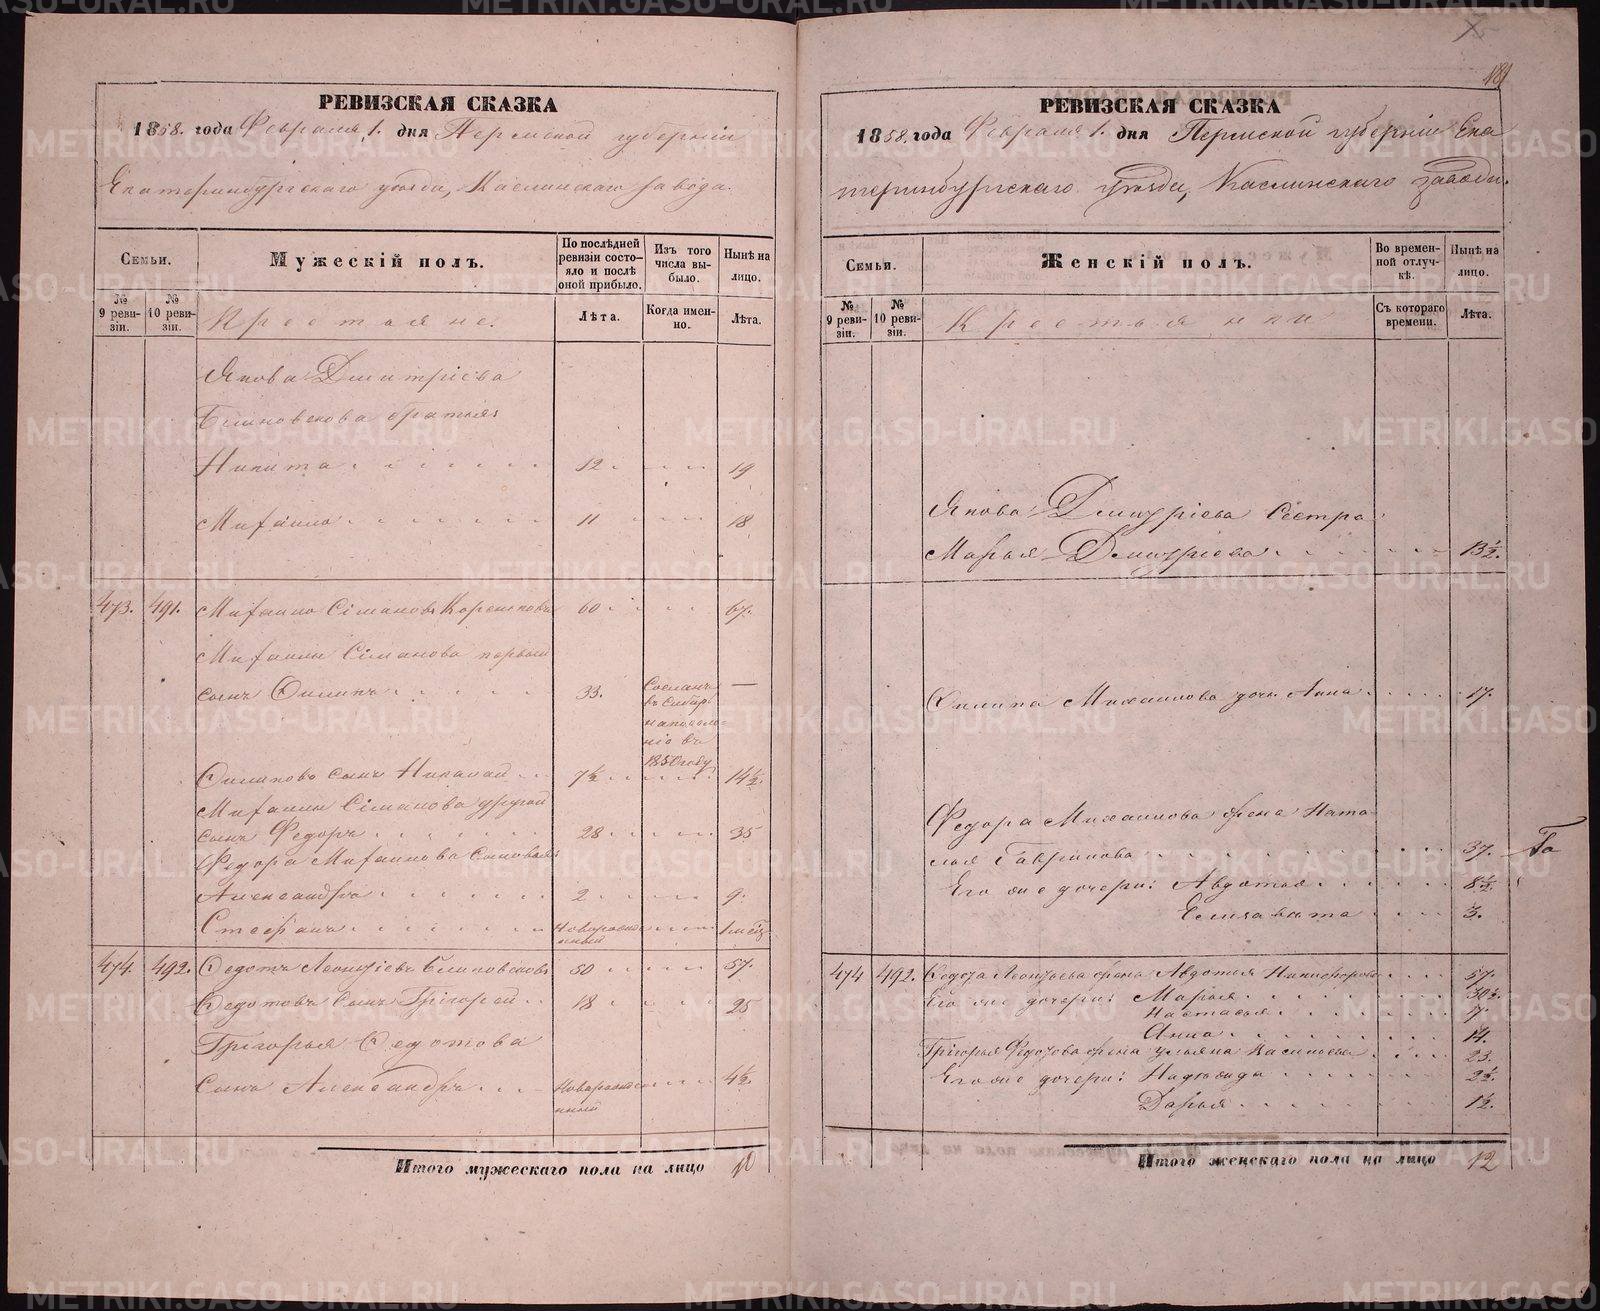 РЕВИЗСКАЯ СКАЗКА
1858. года Февраля 1. дня Пермской губерніи
Екатеринбургскаго уѣзда, Каслинскаго завода.
Семьи.
Мужескій полъ.
По послѣдней ревизіи состояло и послѣ оной прибыло.
Изъ того числа выбыло.
Нынѣ на лицо.
№ 9 ревизіи.
№ 10 ревизіи.
Крестьяне.
Лѣта.
Когда именно.
Лѣта.
Якова Дмитріева
братья
Никита 12 19
Михаило 11 18
473. 491. Михаило Симановъ 60 67.
Михаилы Симанова первый
сынъ Филипъ 33. Сосланъ въ Сибирь на поселеніе въ 1850 году —
Филиповъ сынъ Николай 7½ 14½.
Михаилы Симанова другой
сынъ Федоръ 28 35
Федора Михаилова сыновья:
Александръ 2 9.
Стефанъ Новорожденный 1 мѣс.
474. 492. Федотъ Леонтіевъ 50 57.
Федотовъ сынъ Григорей 18 25
Григорья Федотова
сынъ Александръ Новорожденный 4½.
Итого мужескаго пола на лицо 10
181
РЕВИЗСКАЯ СКАЗКА
1858. года Февраля 1. дня Пермской губерніи Ека
теринбургскаго уѣзда, Каслинскаго завода.
Семьи.
Женскій полъ.
Во временной отлучкѣ.
Нынѣ на лицо.
№ 9 ревизіи.
№ 10 ревизіи.
Крестьянки
Съ котораго времени.
Лѣта.
Якова Дмитріева сестра
Марья Дмитріева 13½.
Филипа Михаилова дочь Анна 17.
Федора Михаилова жена Ната
лья Гаврилова 37.
Его же дочери: Авдотья 8½.
Елизавета 3.
474 492. Федота Леонтьева жена Авдотья Никифорова 57.
Его же дочери: Марья 30½.
Настасья 7.
Анна 14.
Григорья Федотова жена Ульяна 23.
Его же дочери: Надежда 2½.
Дарья 1½.
Итого женскаго пола на лицо 12
METRIKI.GASO-URAL.RU